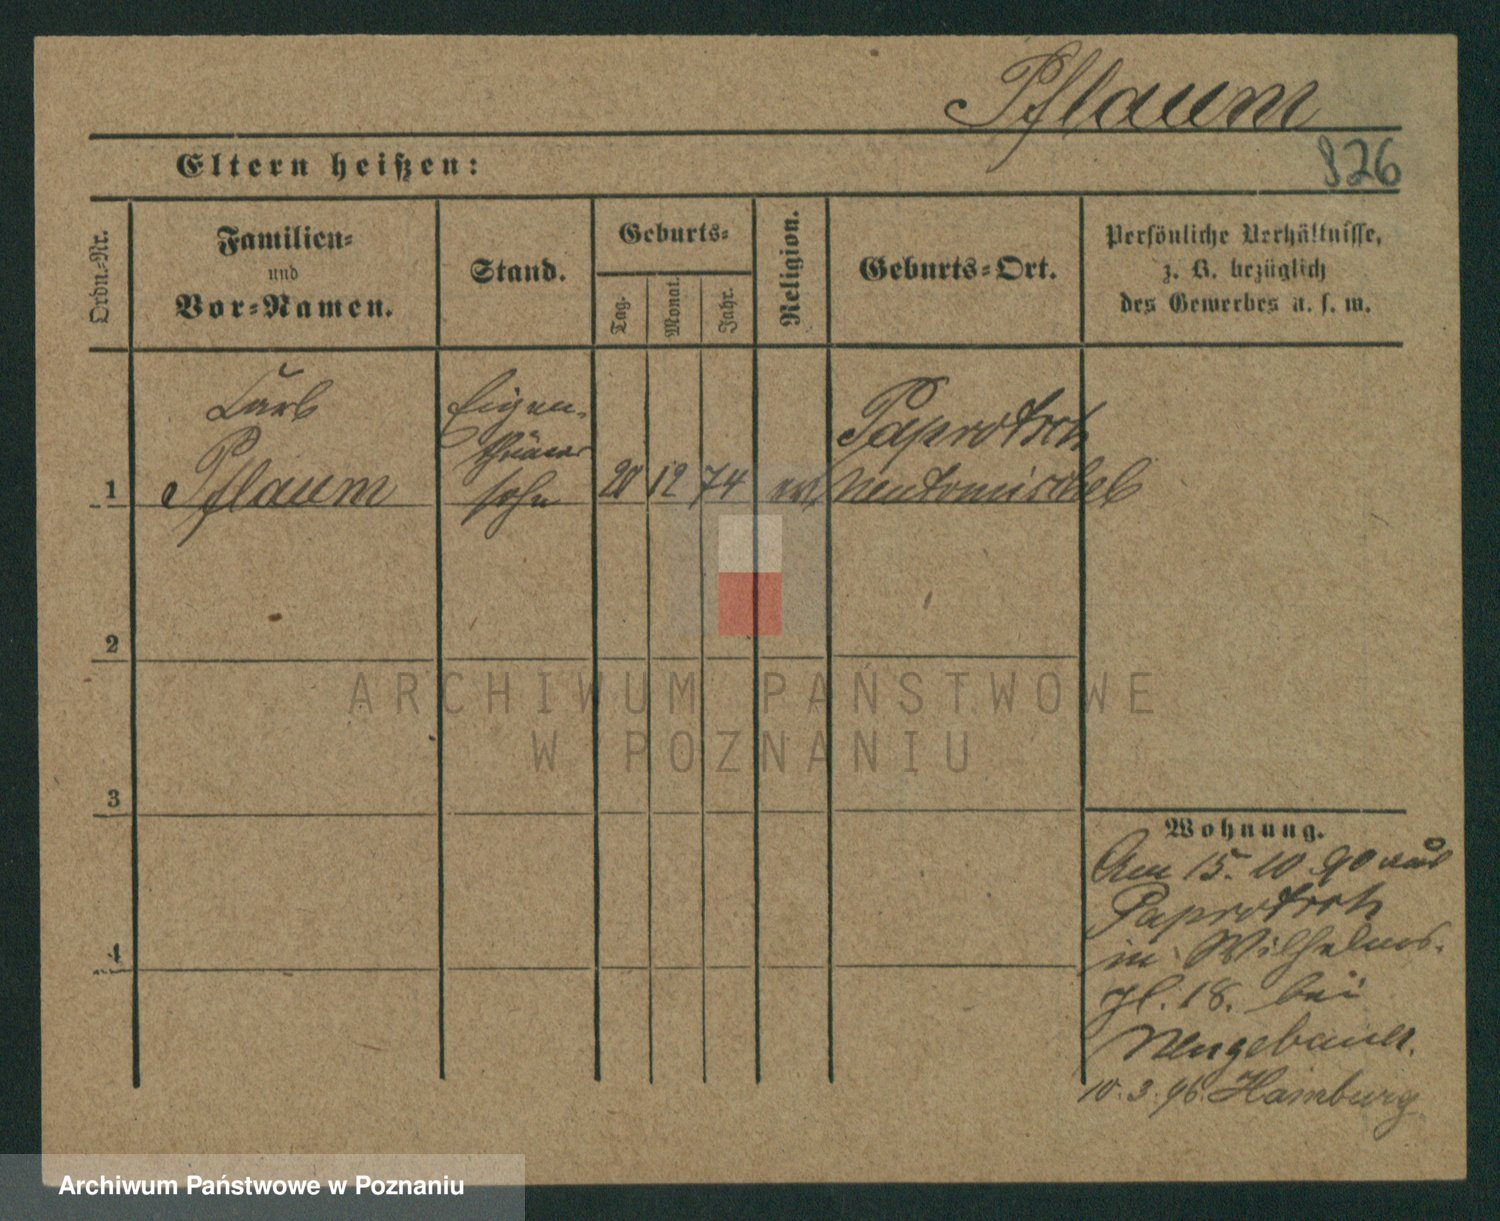 Pflaum
826
Eltern heißen:
Ordn.-Nr.
Familien-
und
Vor-Namen.
Stand.
Geburts-
Tag.
Monat.
Jahr.
Religion.
Geburts-Ort.
Persönliche Verhältnisse,
z. B. bezüglich
des Gewerbes u. s. w.
1
Pflaum
Eigen-
thümer
sohn
20 12 74
ev
Paprotsch
Neutomischel
2
3
4
Wohnung.
Am 15. 10. 90 aus
Paprotsch
in Wilhelms-
pl. 18. bei
Neugebauer.
10. 3. 96. Hamburg.
ARCHIWUM PAŃSTWOWE
W POZNANIU
Archiwum Państwowe w Poznaniu